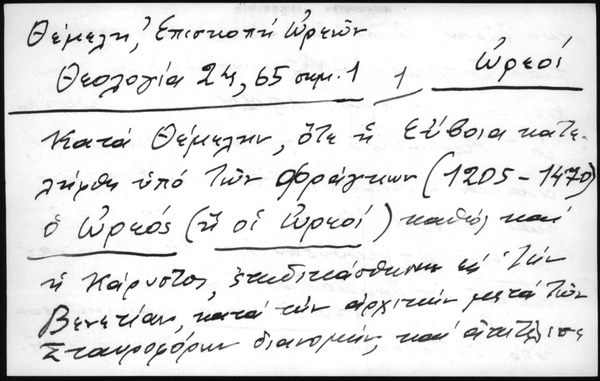 Θέμελη, Ἐπισκοπή Ὠρεῶν
Θεολογία 24, 65 σημ. 1
1
Ὠρεοί
Κατά Θέμελην, ὅτε ἡ Εὔβοια κατε-
λήφθη ὑπό τῶν Φράγκων (1205-1470)
ὁ Ὠρεός (ἤ οἱ Ὠρεοί) καθώς καί
ἡ Κάρυστος, ἐπεδικάσθησαν εἰς τήν
Βενετίαν, κατά τήν ἀρχικήν μετά τῶν
Σταυροφόρων διανομήν, καί